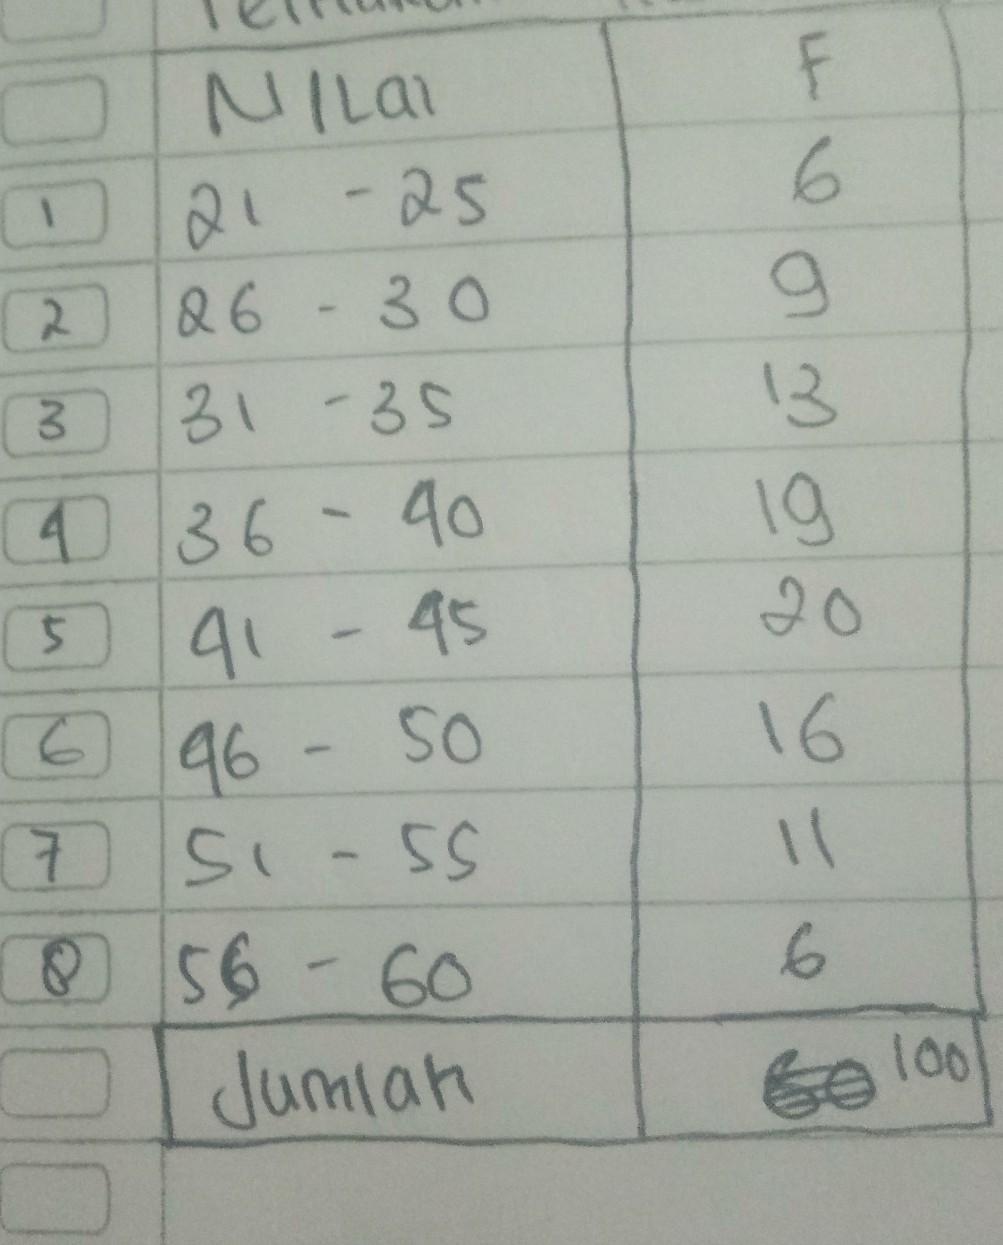 NILai F
1 21 - 25 6
2 26 - 30 9
3 31 - 35 13
4 36 - 40 19
5 41 - 45 20
6 46 - 50 16
7 51 - 55 11
8 56 - 60 6
Jumlah 100